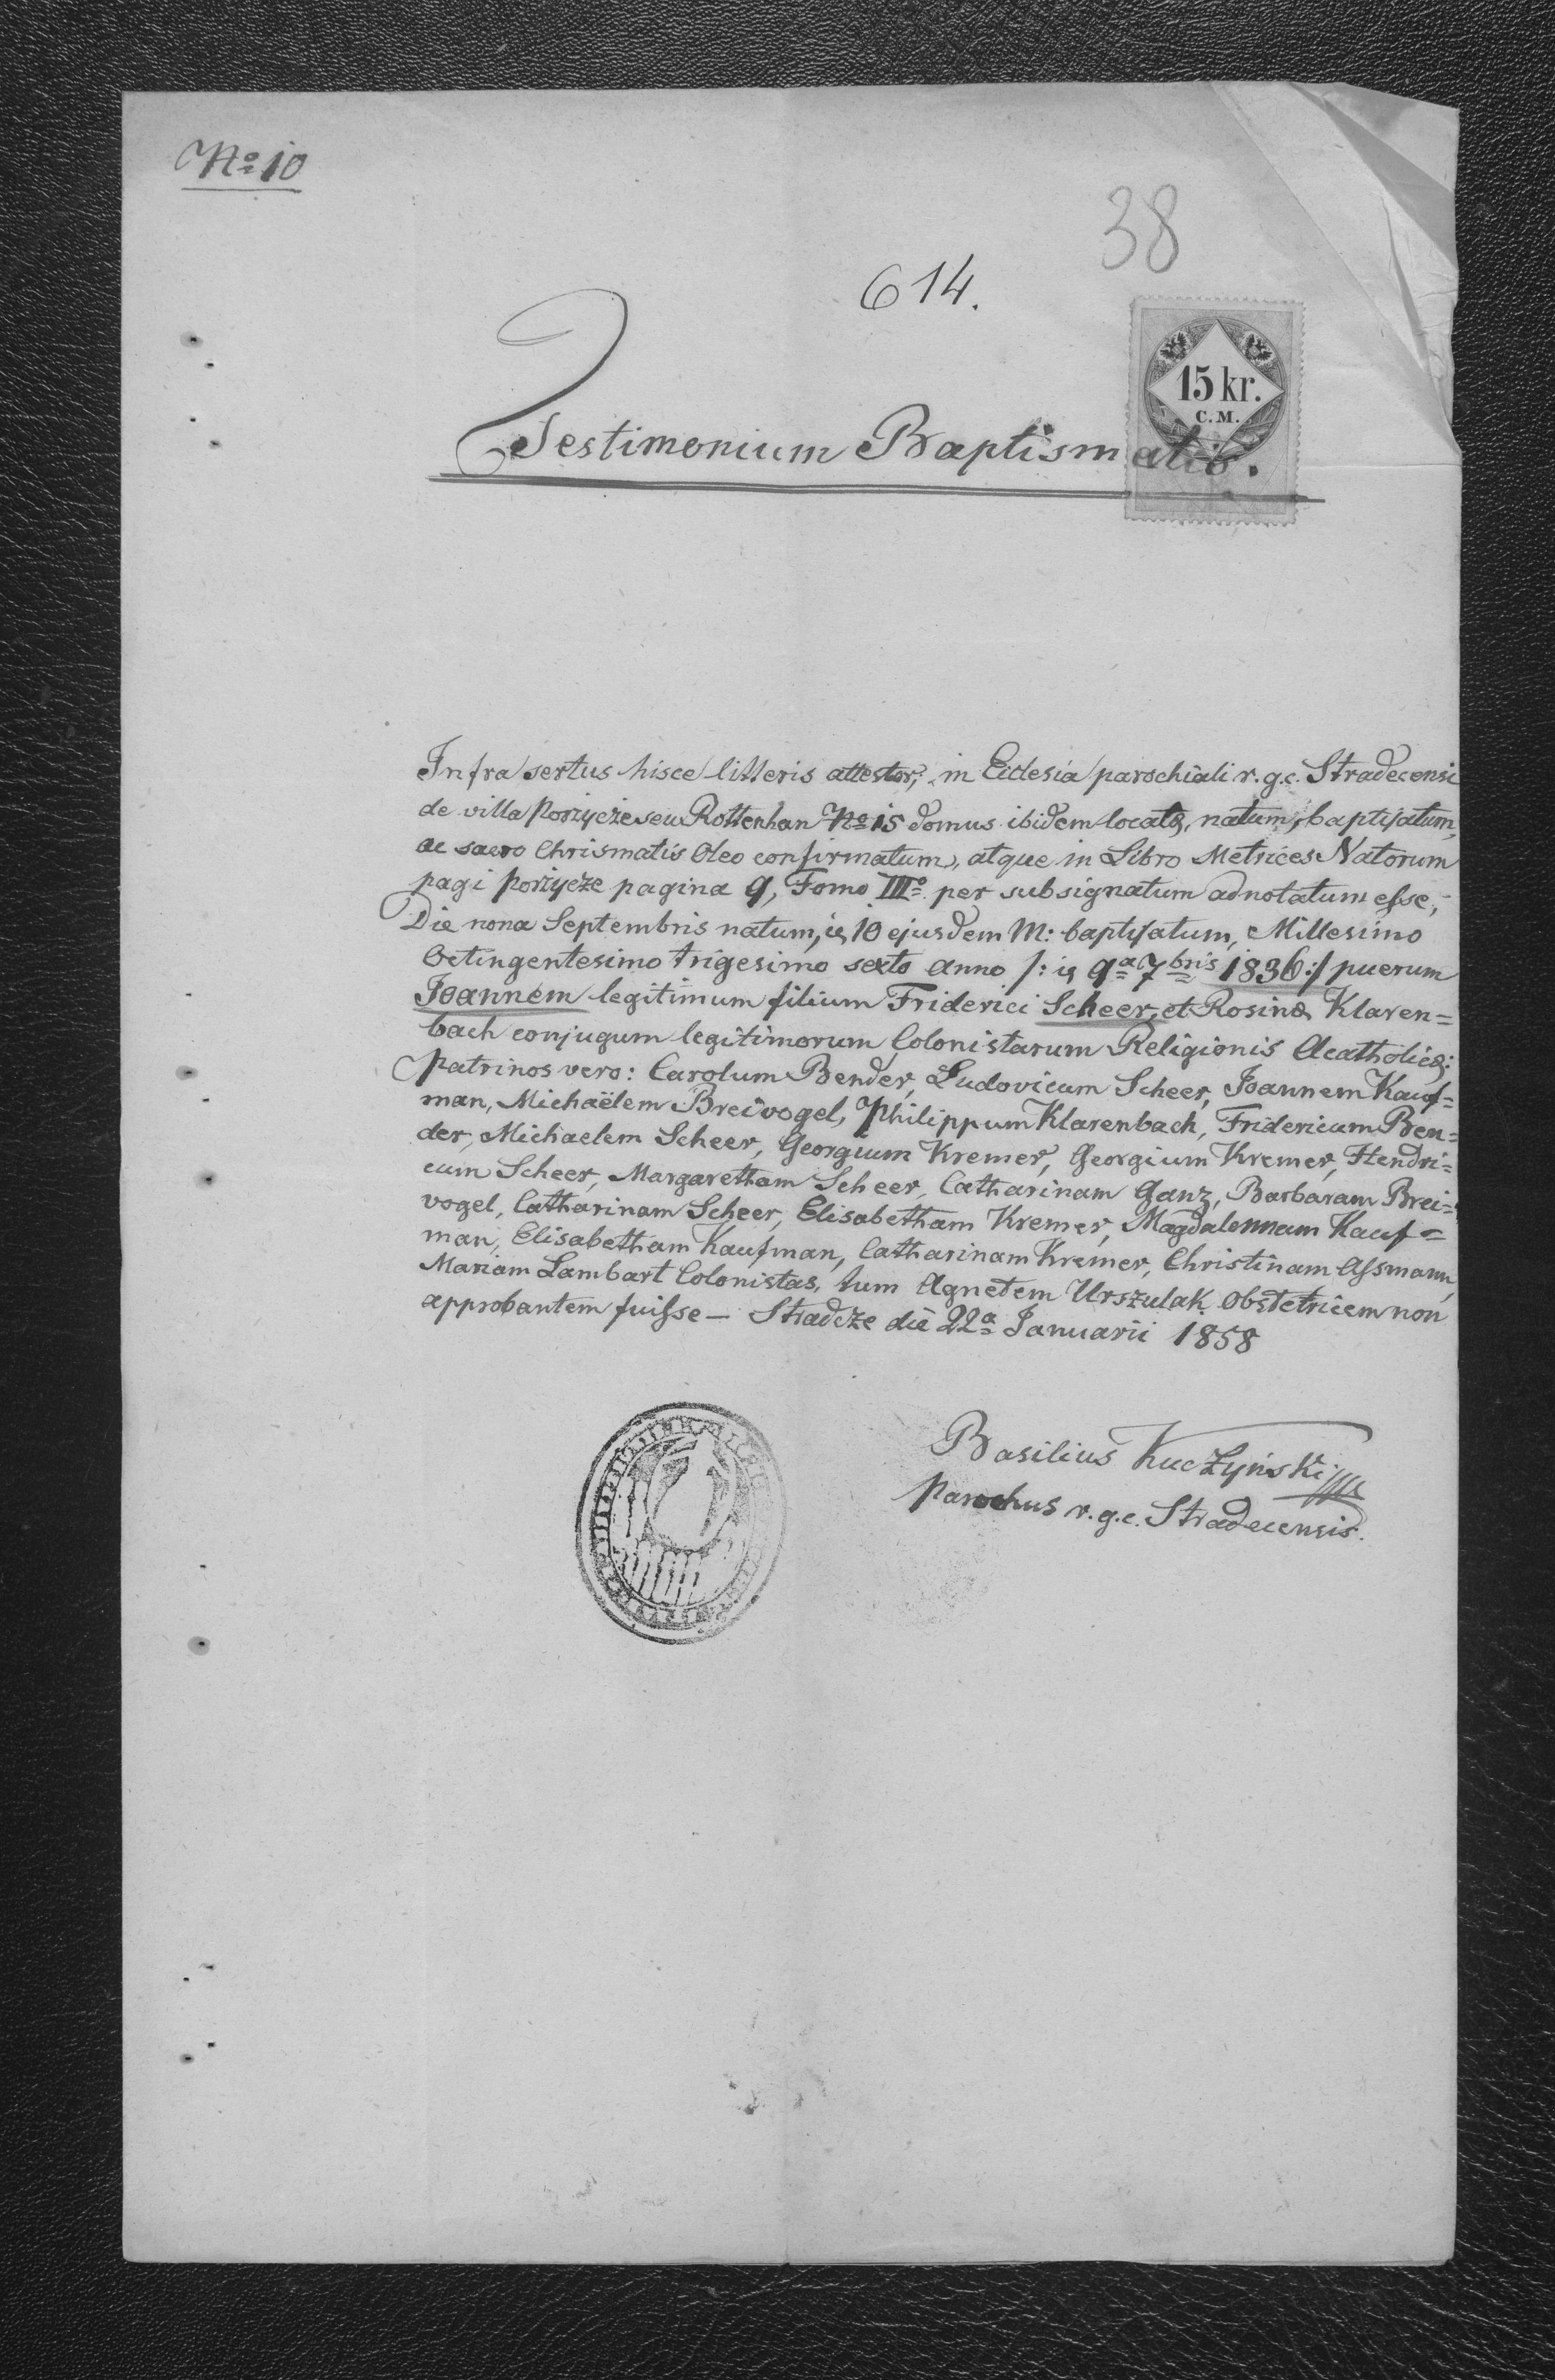 No 10
38
614.
15 kr.
C.M.
Testimonium Baptismatis.
Infra sertus hisce litteris attestor, in Eclesia parochiali r.g.c. Stradecensi
de villa Porzycze seu Rottenhan No 15 domus ibidem locatæ, natum, baptisatum,
ac sacro Chrismatis Oleo confirmatum, atque in Libro Metrices Natorum
pagi Porzycze pagina 9, Tomo IIIo per subsignatum adnotatum esse,
Die nona Septembris natum, is 10 ejusdem M: baptisatum, Millesimo
Octingentesimo trigesimo sexto anno /: is 9a 7bris 1836:/ puerum
Joannem legitimum filium Friderici Scheer, et Rosinæ Klaren=
bach conjugum legitimorum Colonistarum Religionis Acatholicæ:
Patrinos vero: Carolum Bender, Ludovicum Scheer, Joannem Kauf=
man, Michaëlem Breivogel, Philippum Klarenbach, Fridericum Ben=
der, Michaelem Scheer, Georgium Kremer, Georgium Kremer, Hendri=
cum Scheer, Margaretham Scheer, Catharinam Ganz, Barbaram Brei=
vogel, Catharinam Scheer, Elisabetham Kremer, Magdalennam Kauf=
man, Elisabetham Kaufman, Catharinam Kremer, Christinam Assmann,
Mariam Lambart Colonistas, tum Agnetem Urszulak Obstetricem non
approbantem fuisse – Stradcze die 22a Januarii 1858
Basilius Kuczyński
Parochus r.g.c. Stradecensis.